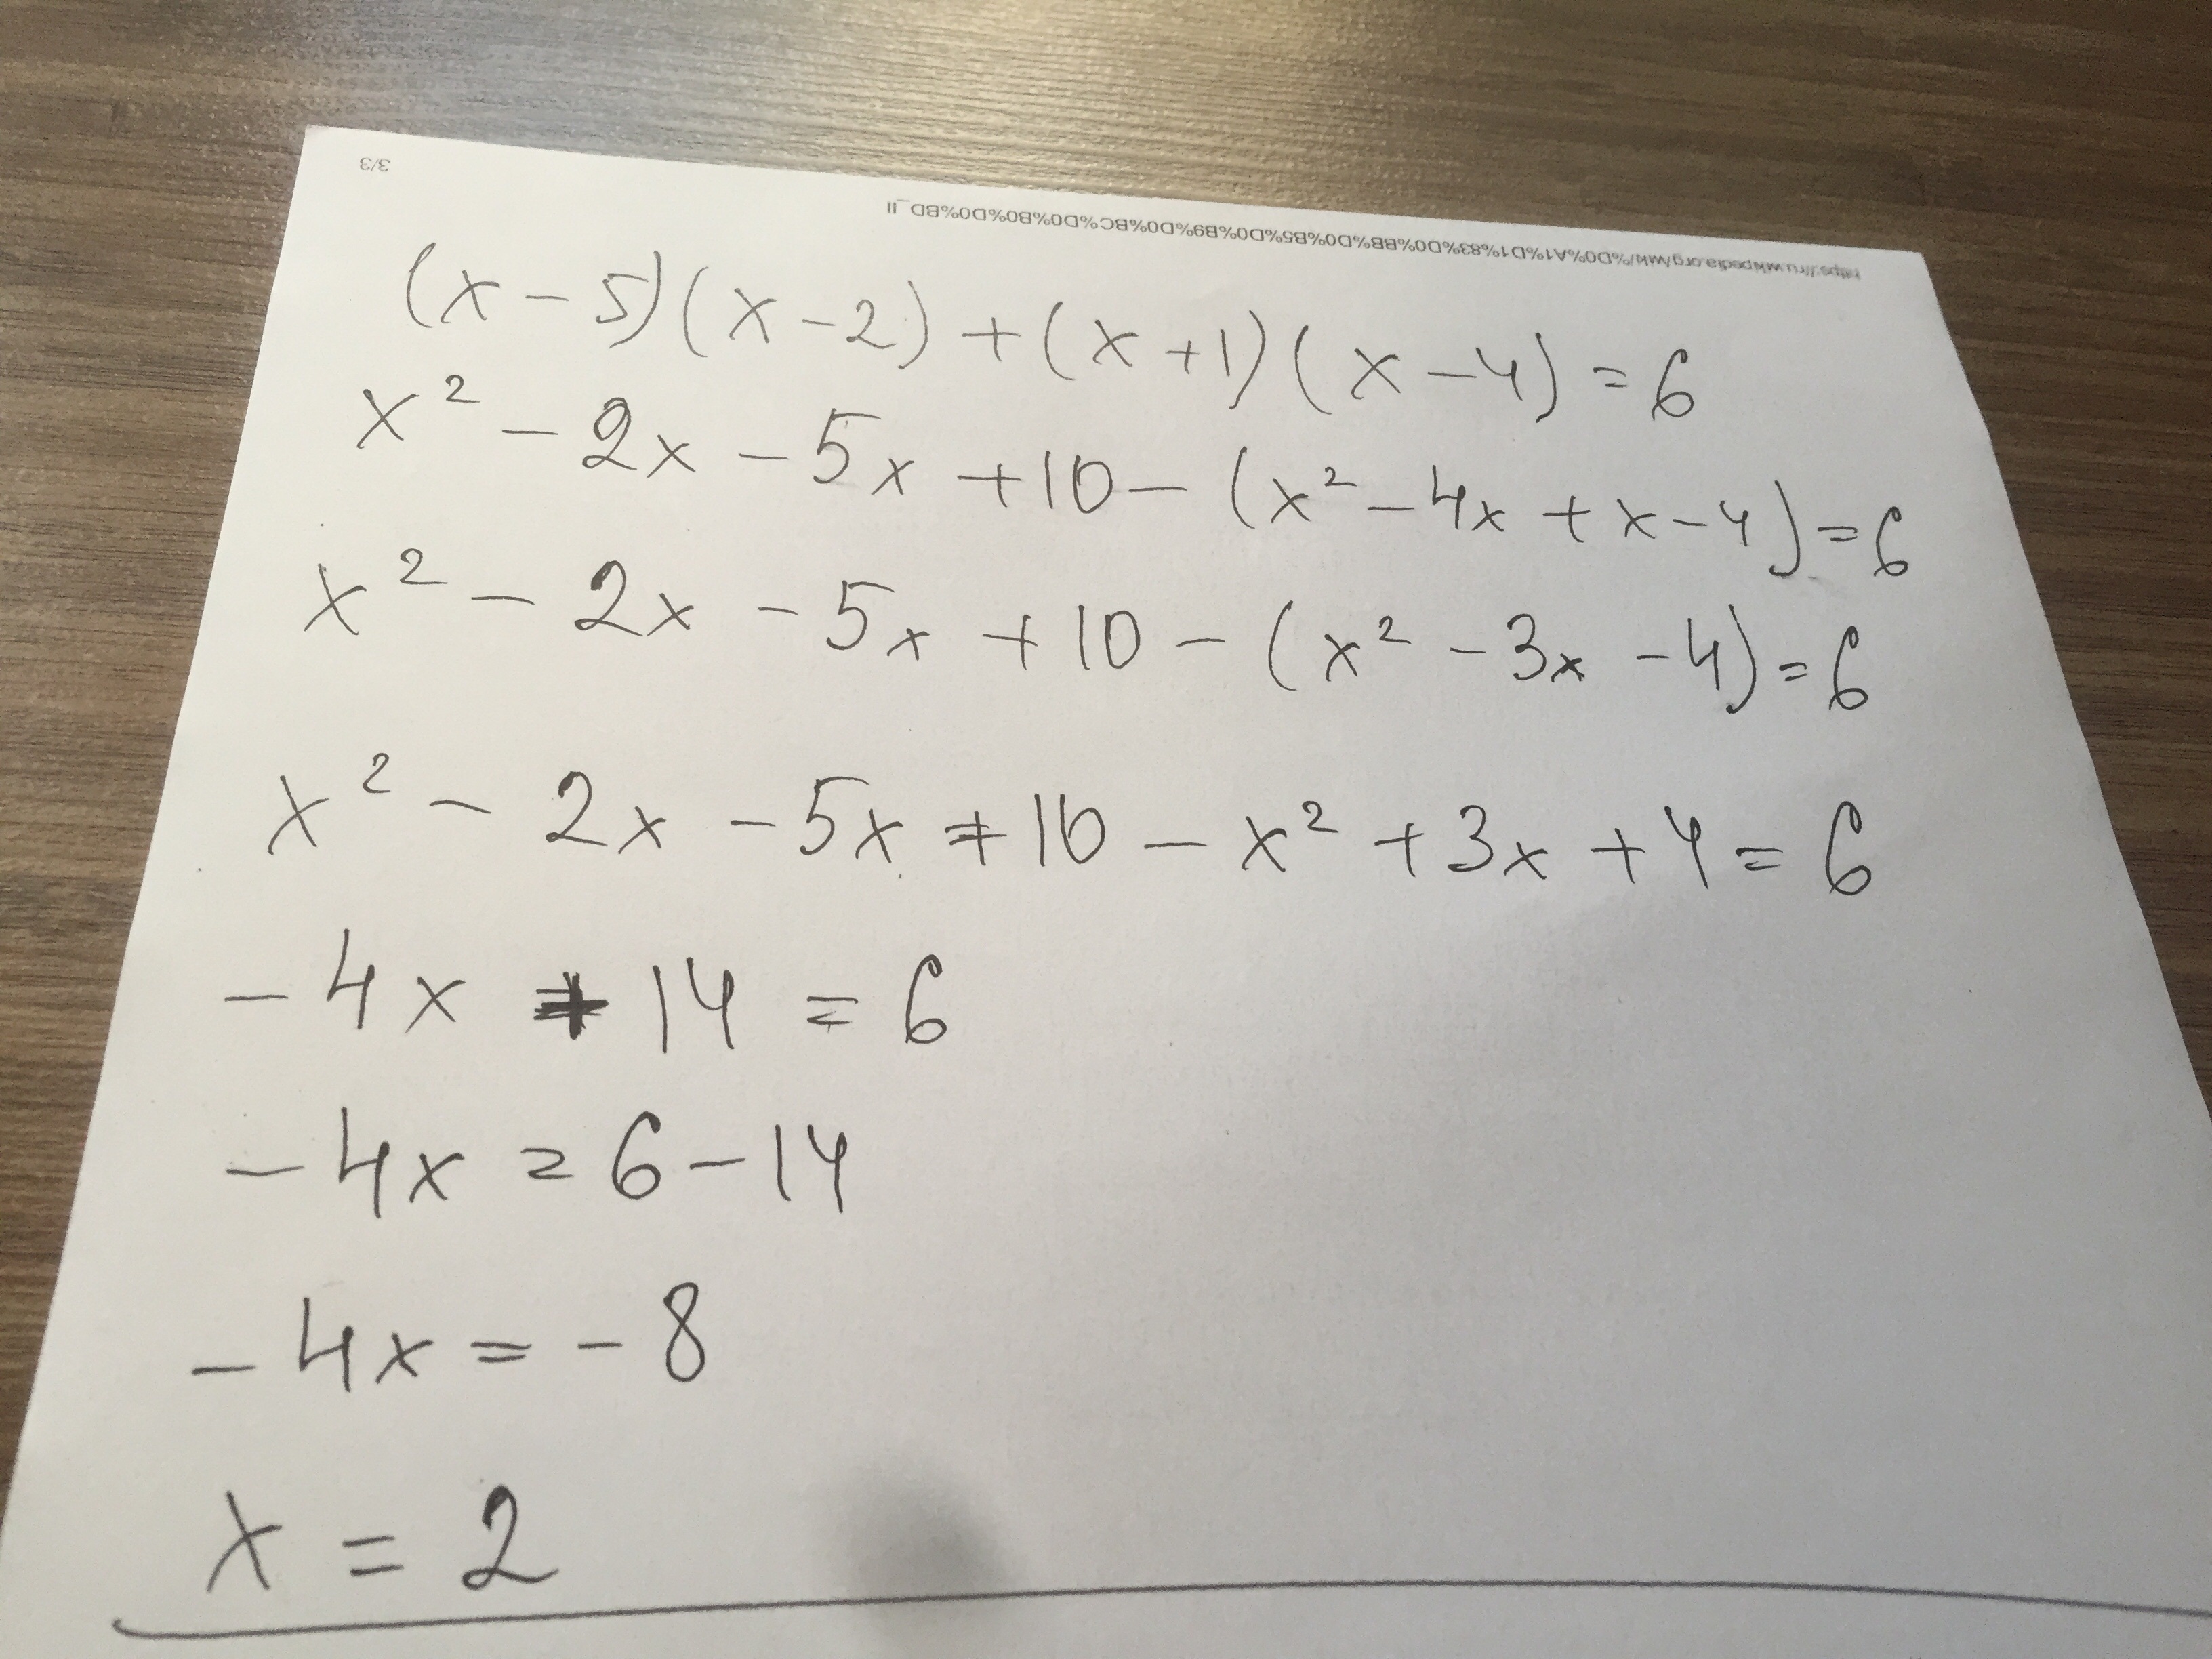 3/3
https://ru.wikipedia.org/wiki/%D0%A1%D1%83%D0%BB%D0%B5%D0%B9%D0%BC%D0%B0%D0%BD_II
(x-5)(x-2)+(x+1)(x-4)=6
x²-2x-5x+10-(x²-4x+x-4)=6
x²-2x-5x+10-(x²-3x-4)=6
x²-2x-5x+10-x²+3x+4=6
-4x+14=6
-4x=6-14
-4x=-8
x=2